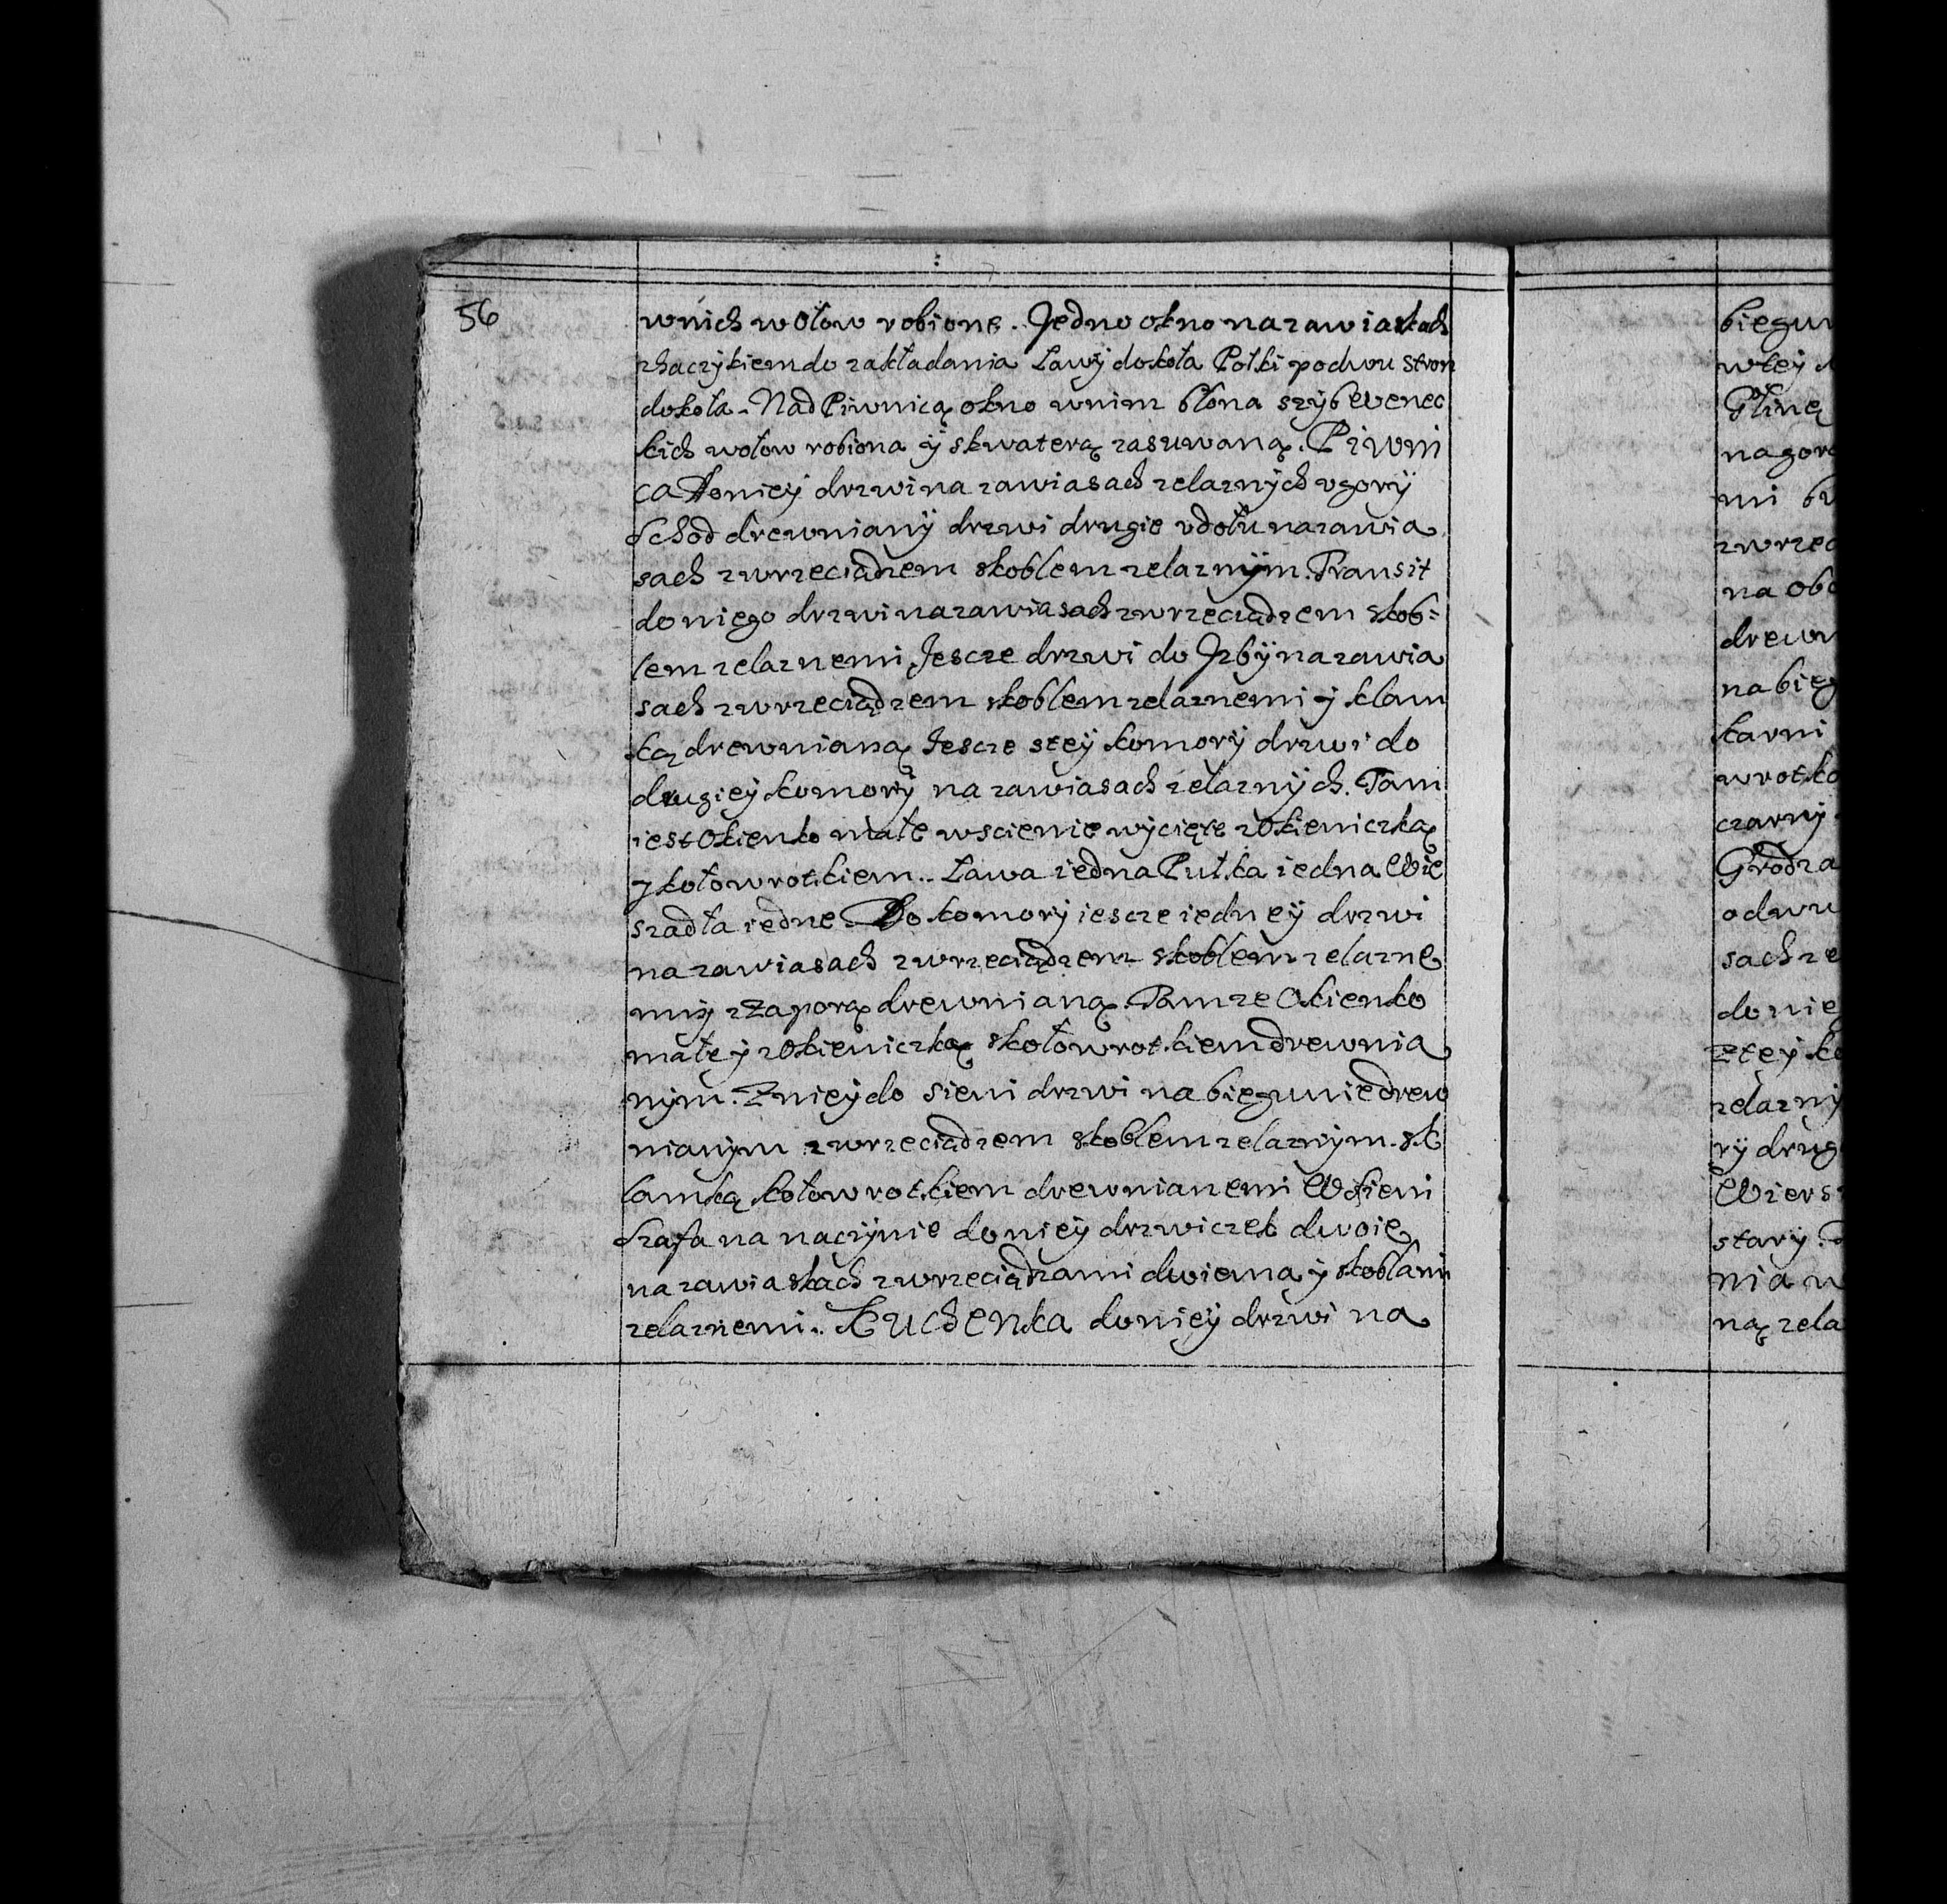 56
w nich w ołow robione. Jedno okno na zawiaskach
z haczykiem do zakładania Ławy dokoła Połki po dwu stron
dokoła. Nad Piwnicą okno w nim błona szyb Wenec
kich w ołow robiona y s kwaterą zasuwaną. Piwni
ca Do niey drzwi na zawiasach zelaznych v gory
Schod drewniany drzwi drugie v dołu na zawia
sach z wrzeciądzem skoblem zelaznym. Transit
do niego drzwi na zawiasach z wrzeciądzem skob=
lem zelaznemi Jescze drzwi do Jzby na zawia
sach z wrzeciądzem skoblem zelaznemi y klam
ką drewnianą Jescze s tey komory drzwi do
drugiey komory na zawiasach zelaznych. Tam
iest Okienko małe w scienie wycięte z Okieniczką
y kołowrotkiem.. Ława iedna Pułka iedna Wie
szadła iedne Do komory iescze iedney drzwi
na zawiasach z wrzeciądzem skoblem zelazne
mi y z Zaporą drewnianą Tamze Okienko
małe y z Okieniczką s kołowrotkiem drewnia
nym. Z niey do sieni drzwi na biegunie drew
nianym z wrzeciądzem skoblem zelaznym. s k
lamką kołowrotkiem drewnianemi W sieni
Szafa na naczynie do niey drzwiczek dwoie
na zawiaskach z wrzeciądzami dwiema y skoblami
zelaznemi. Kuchenka do niey drzwi na
biegun
w tey
Gliną
na gore
mi
z wrzec
na obo
drewn
na bieg
karni
wrotko
czarny
Grodza
o dwu
sach ze
do nie
Z tey ko
zelazny
ry drug
Wiers
stary.
nia
ną zela